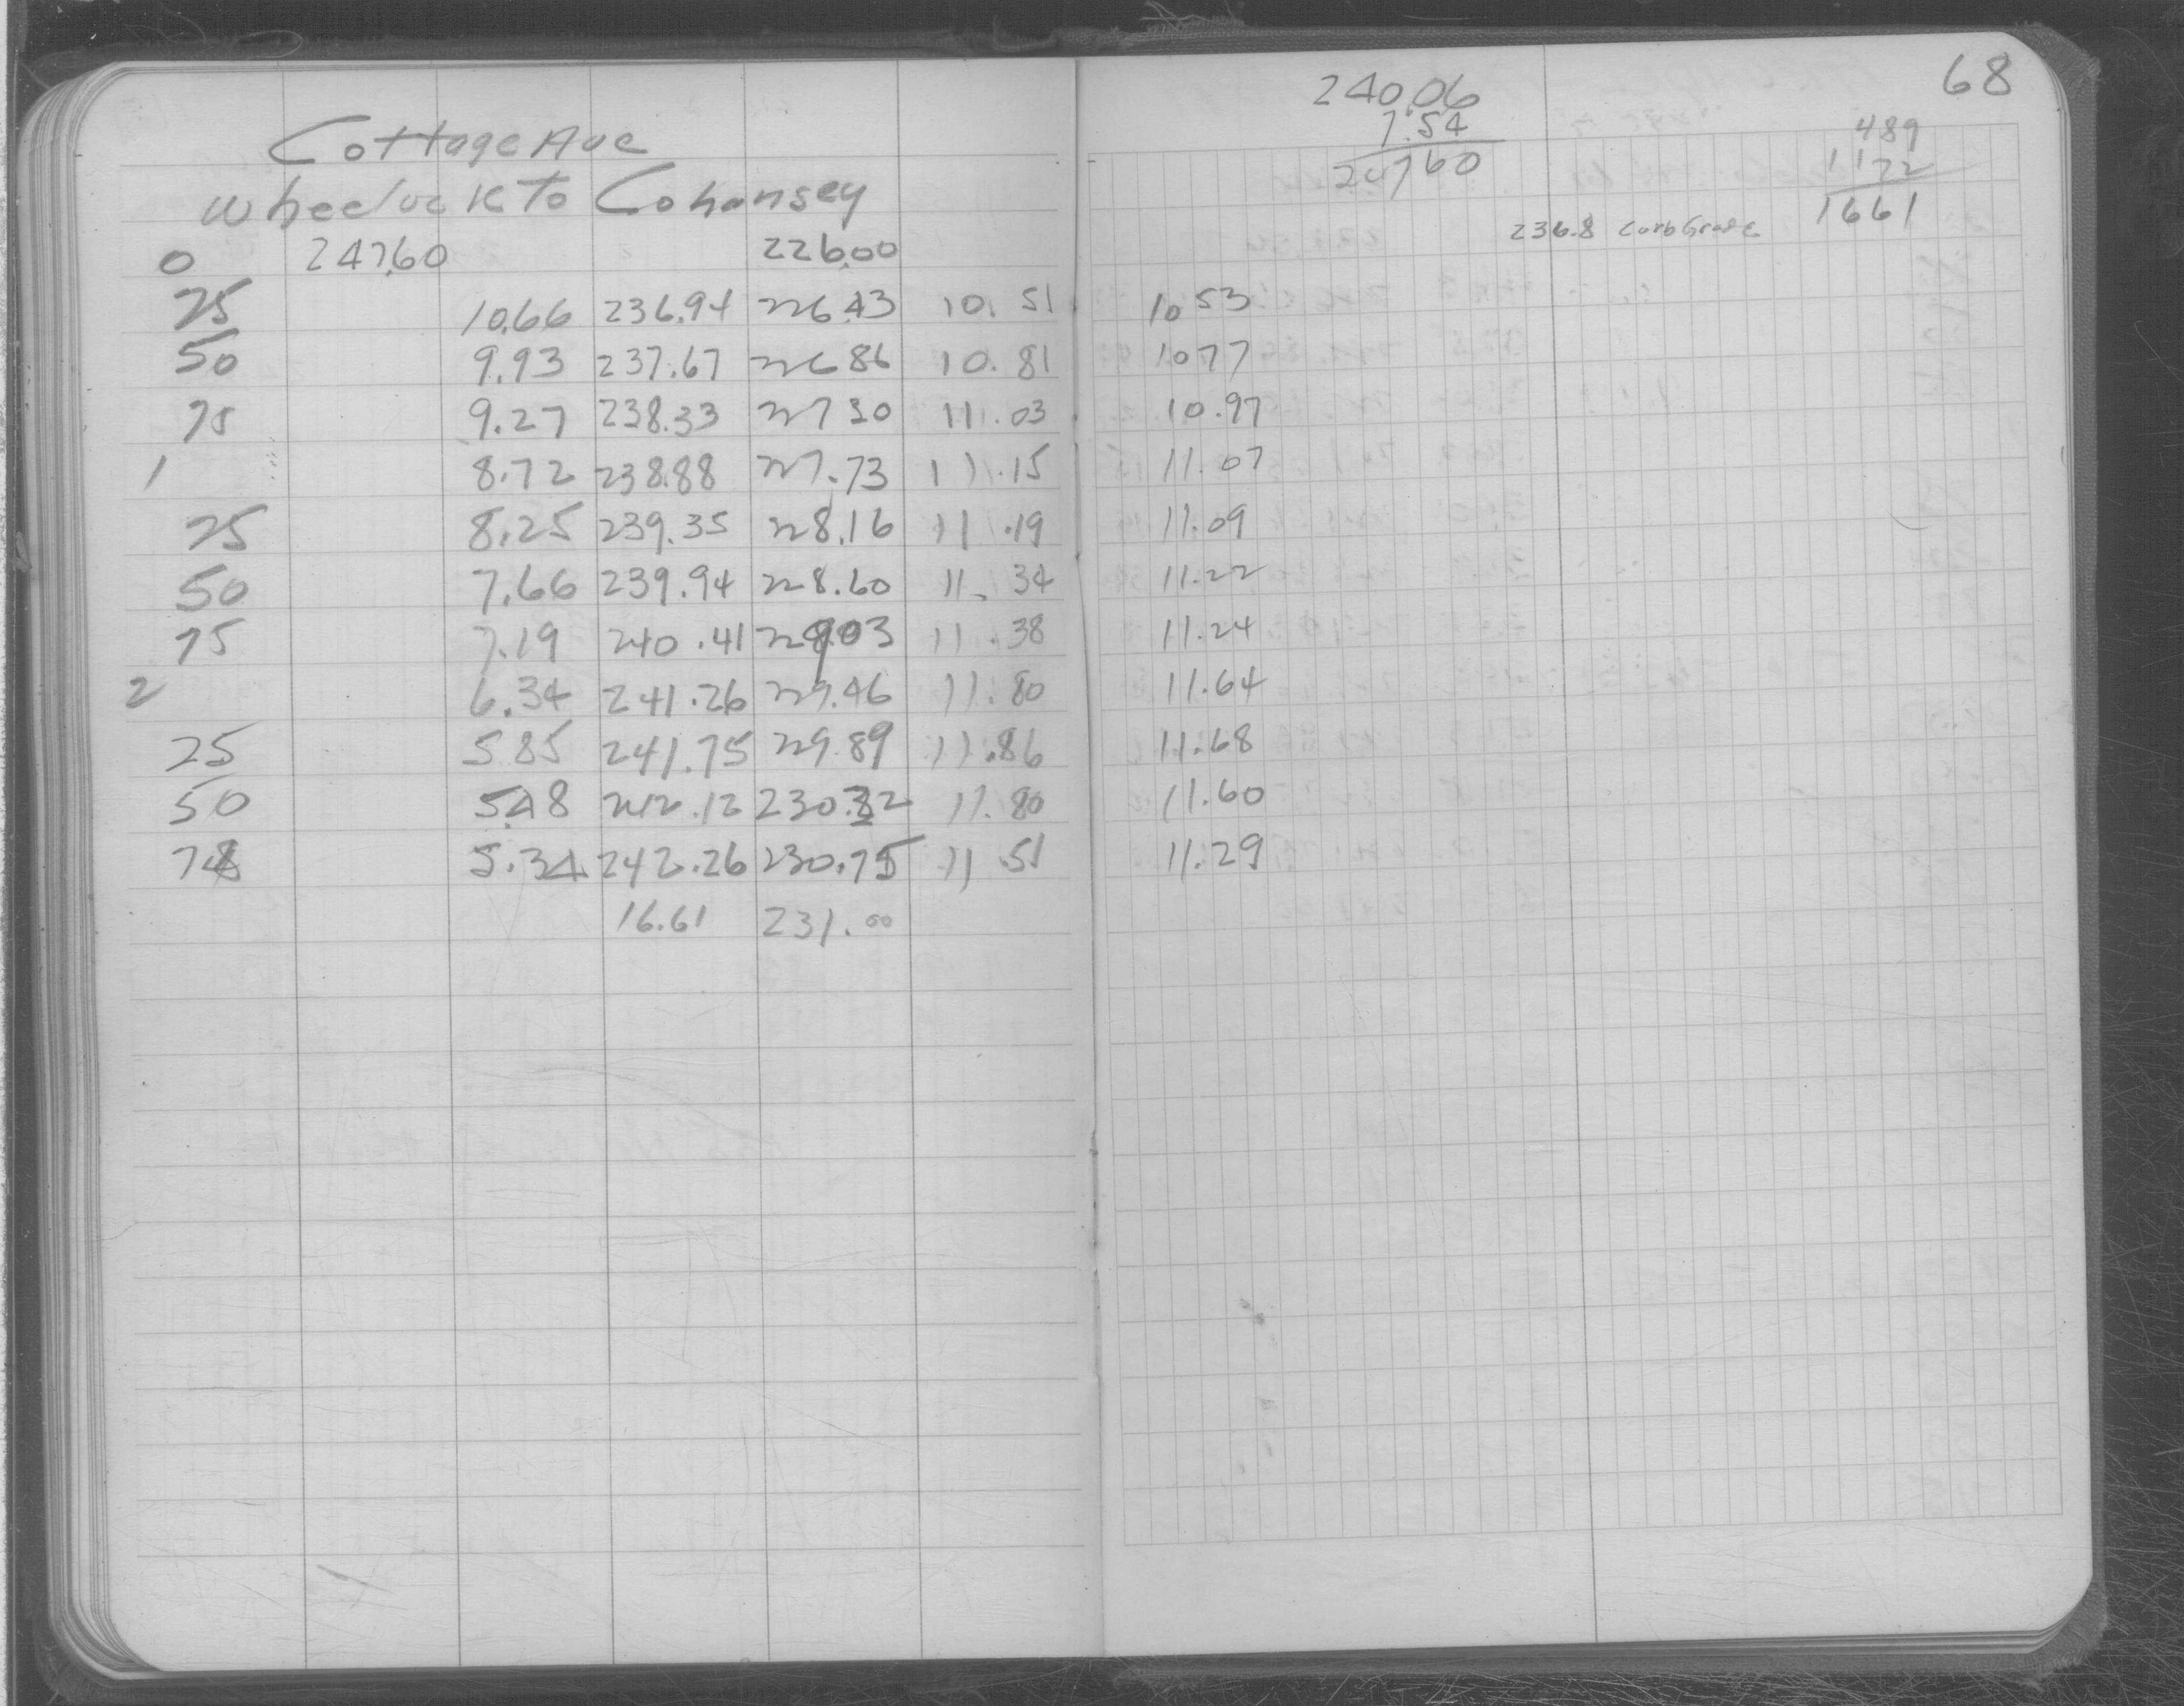 Cottage Ave
Wheelock to Cohansey
0 247.60 226.00
25 10.66 236.94 226.43 10.51
50 9.93 237.67 226 86 10.81
75 9.27 238.33 227 30 11.03
1 8.72 238.88 227.73 11.15
25 8.25 239.35 228.16 11.19
50 7.66 239.94 228.60 11.34
75 7.19 240.41 229.03 11.38
2 6.34 241.26 229.46 11.80
25 5.85 241.75 229.89 11.86
50 5.48 242.12 230.32 11.80
78 5.34 242.26 230.75 11.51
16.61 231.00
68
240.06
7.54
247 60
489
1172
1661
236.8 Curb Grade
10 53
10 77
10.97
11.07
11.09
11.22
11.24
11.64
11.68
11.60
11.29